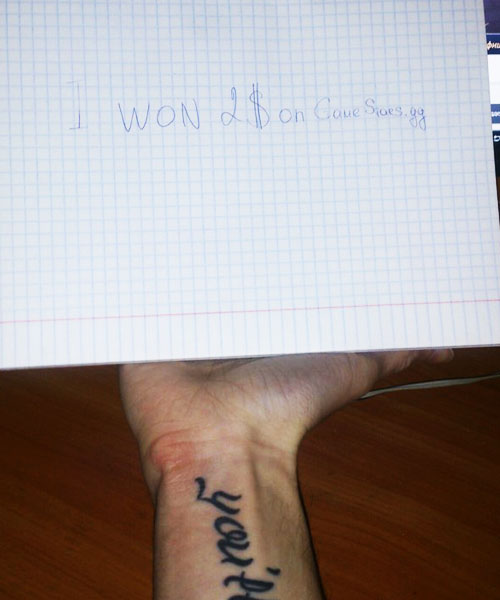 I WON 2$ on CaueSiues.gg
you'll